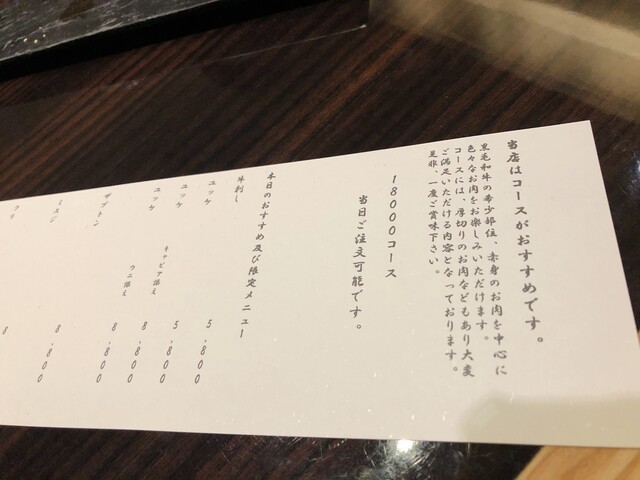 当店はコースがおすすめです。
黒毛和牛の希少部位、赤身のお肉を中心に
色々なお肉をお楽しみいただけます。
コースには、厚切りのお肉などもあり大変
ご満足いただける内容となっております。
是非、一度ご賞味下さい。
18000コース
当日ご注文可能です。
本日のおすすめ及び限定メニュー
牛刺し
ユッケ 5,800
ユッケ キャビア添え 5,800
ユッケ ウニ添え 8,800
ザブトン 8,800
ミスジ 8,800